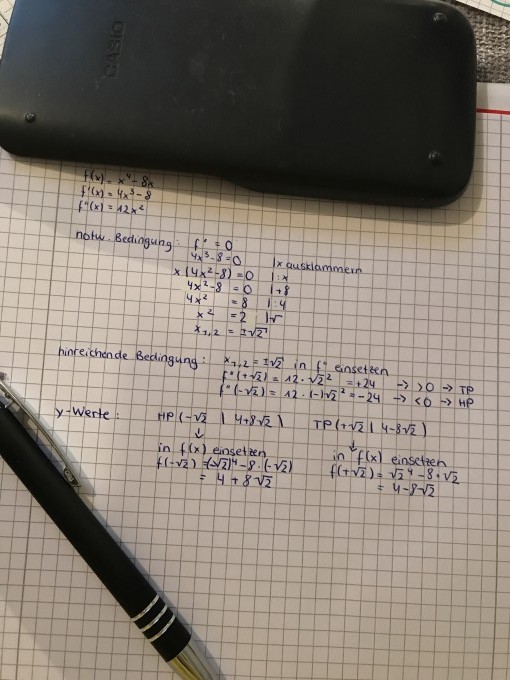 CASIO
f(x) = x⁴ - 8x
f'(x) = 4x³ - 8
f''(x) = 12x²
notw. Bedingung: f' = 0
4x³ - 8 = 0 | x ausklammern
x (4x² - 8) = 0 | : x
4x² - 8 = 0 | + 8
4x² = 8 | : 4
x² = 2 | √
x₁,₂ = ±√2
hinreichende Bedingung: x₁,₂ = ±√2 in f'' einsetzen
f''(+√2) = 12 · √2² = +24 → > 0 → TP
f''(-√2) = 12 · (-)√2² = -24 → < 0 → HP
y-Werte: HP (-√2 | 4+8√2) TP (+√2 | 4-8√2)
↓ ↓
in f(x) einsetzen in f(x) einsetzen
f(-√2) = (-√2)⁴ - 8 · (-√2) f(+√2) = √2⁴ - 8 · √2
= 4 + 8√2 = 4 - 8√2